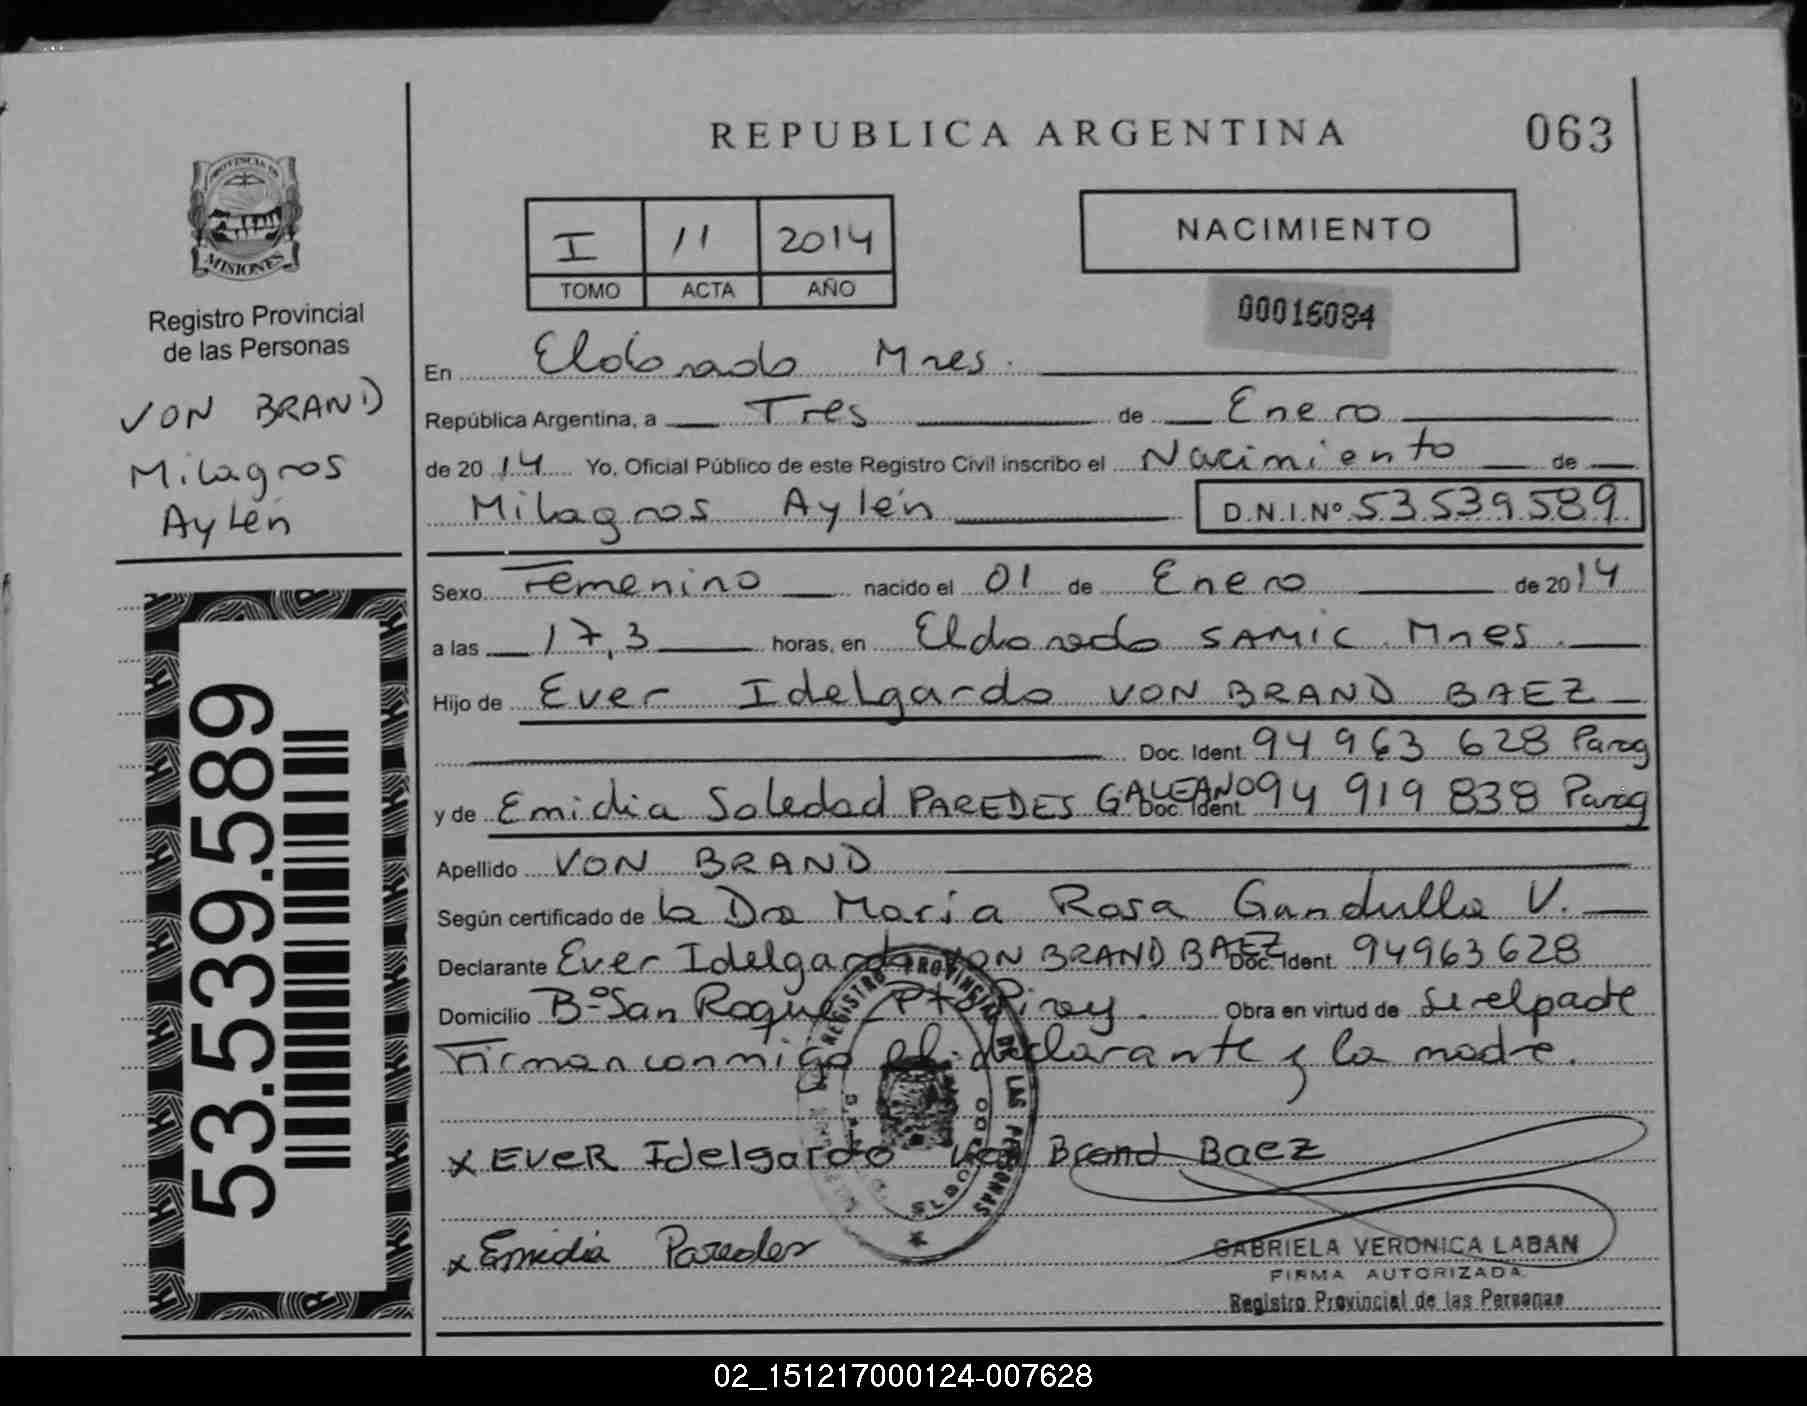 REPUBLICA ARGENTINA
063
PROVINCIA DE
MISIONES
Registro Provincial
de las Personas
VON BRAND
Milagros
Aylén
53.539.589
I 11 2014
TOMO ACTA AÑO
NACIMIENTO
00016084
En Eldorado Mnes.
República Argentina, a Tres de Enero
de 2014 Yo, Oficial Público de este Registro Civil inscribo el Nacimiento de
Milagros Aylén D.N.I.Nº 53.539.589
Sexo Femenino nacido el 01 de Enero de 2014
a las 17,3 horas, en Eldorado SAMIC Mnes.
Hijo de Ever Idelgardo VON BRAND BAEZ
Doc. Ident. 94 963 628 Parag
y de Emidia Soledad PAREDES GALEANO Doc. Ident. 94 919 838 Parag
Apellido VON BRAND
Según certificado de la Dra Maria Rosa Gandulla V.
Declarante Ever Idelgardo VON BRAND BAEZ Doc. Ident. 94963628
Domicilio Bº San Roque Pto Piray. Obra en virtud de ser el padre
Firman conmigo el declarante y la madre.
x EVER Idelgardo Von Brand Baez
REGISTRO PROVINCIAL DE LAS PERSONAS
ELDORADO
x Emidia Paredes
GABRIELA VERONICA LABAN
FIRMA AUTORIZADA
Registro Provincial de las Personas
02_151217000124-007628